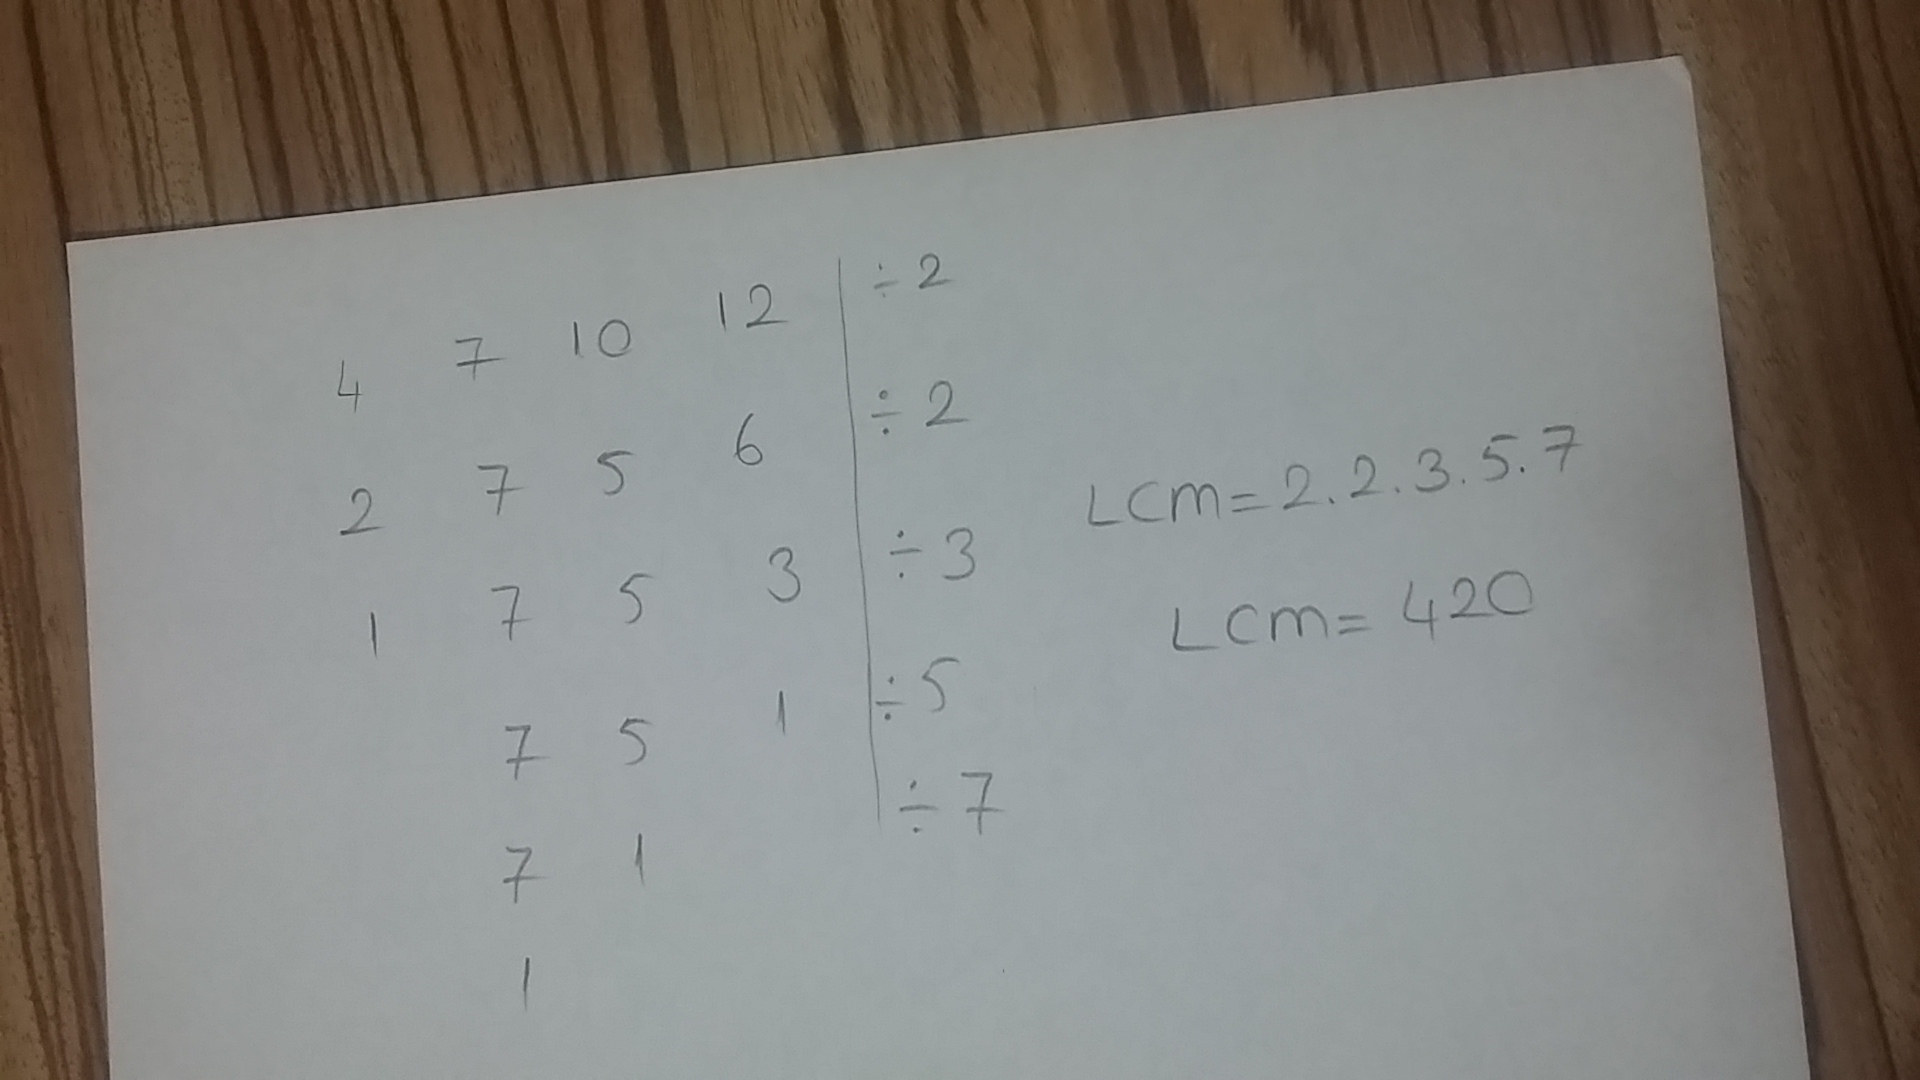 4 7 10 12 ÷2
2 7 5 6 ÷2
1 7 5 3 ÷3
7 5 1 ÷5
7 1 ÷7
1
LCM=2.2.3.5.7
LCM=420